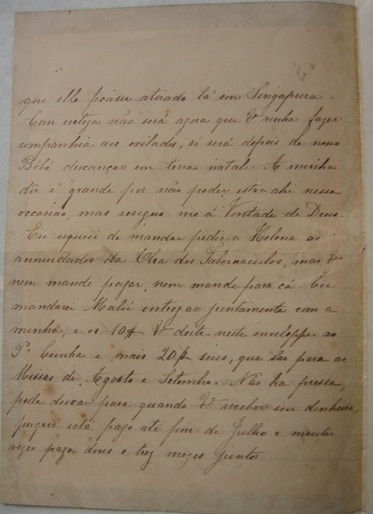 que elle ficasse atirado lá em Singapura.
Com certeza não será agora que V. venha fazer
companhia aos exilados, si será depois de nosso
Bébé descançar em terra natal. A minha
dôr é grande por não poder estar ahi nessa
occasião, mas resigno me á Vontade de Deus.
Eu esqueci de mandar pedir a Helena as
annuidades da Obra dos Tabernaculos, mas V.
nem mande pagar, nem mande para cá Eu
mandarei entregar juntamente com a
minha, e os 10$ V. deite neste enveloppe ao
Pe. Cunha e mais 20$ seus, que são para as
Missas de, Agosto e Setembro. Não ha pressa,
pode deixar para quando V. receber seu dinheiro,
porque está pago até fim de Julho e muitas
vezes pagar dous e trez mezes juntos